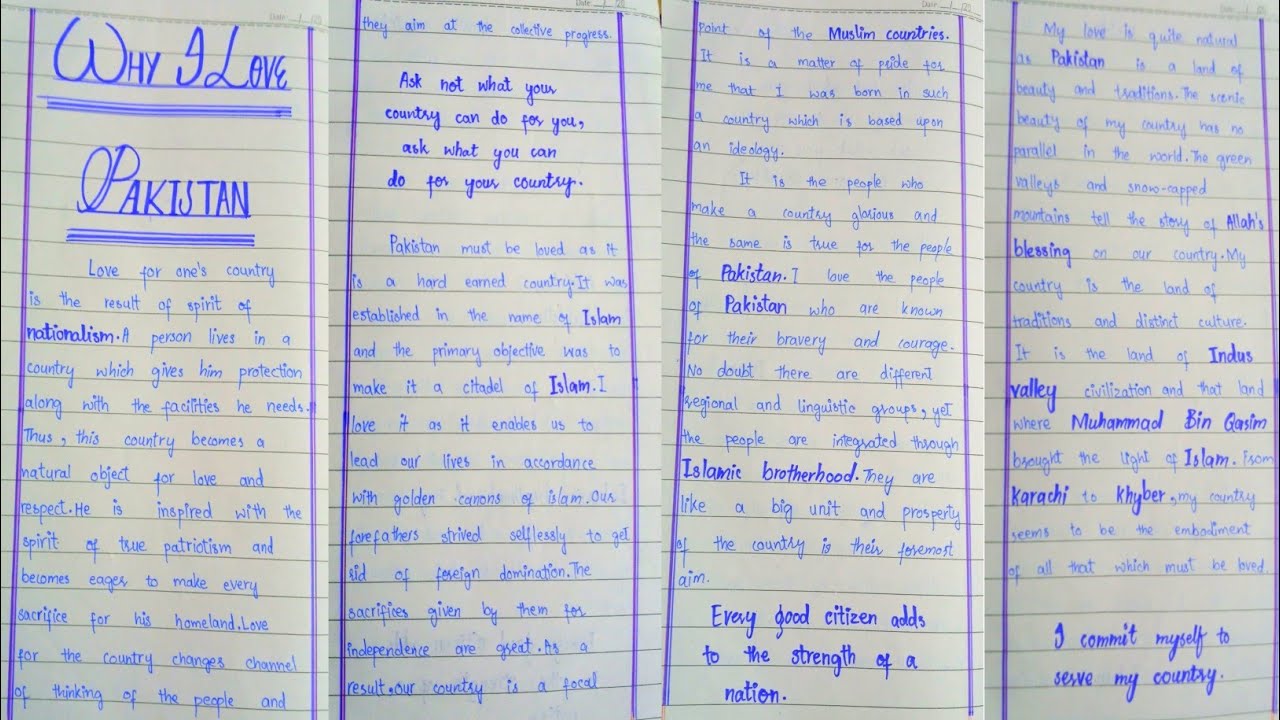 WHY I LOVE
PAKISTAN
Love for one's country
is the result of spirit of
nationalism. A person lives in a
country which gives him protection
along with the facilities he needs.
Thus, this country becomes a
natural object for love and
respect. He is inspired with the
spirit of true patriotism and
becomes eager to make every
sacrifice for his homeland. Love
for the country changes channel
of thinking of the people and
they aim at the collective progress.
Ask not what your
country can do for you,
ask what you can
do for your country.
Pakistan must be loved as it
is a hard earned country. It was
established in the name of Islam
and the primary objective was to
make it a citadel of Islam. I
love it as it enables us to
lead our lives in accordance
with golden canons of islam. Our
forefathers strived selflessly to get
rid of foreign domination. The
sacrifices given by them for
independence are great. As a
result, our country is a focal
point of the Muslim countries.
It is a matter of pride for
me that I was born in such
a country which is based upon
an ideology.
It is the people who
make a country glorious and
the same is true for the people
of Pakistan. I love the people
of Pakistan who are known
for their bravery and courage.
No doubt there are different
regional and linguistic groups, yet
the people are integrated through
Islamic brotherhood. They are
like a big unit and prosperty
of the country is their foremost
aim.
Every good citizen adds
to the strength of a
nation.
My love is quite natural
as Pakistan is a land of
beauty and traditions. The scenic
beauty of my country has no
parallel in the world. The green
valleys and snow-capped
mountains tell the story of Allah's
blessing on our country. My
country is the land of
traditions and distinct culture.
It is the land of Indus
valley civilization and that land
where Muhammad Bin Qasim
brought the light of Islam. From
Karachi to Khyber, my country
seems to be the embodiment
of all that which must be loved.
I commit myself to
serve my country.